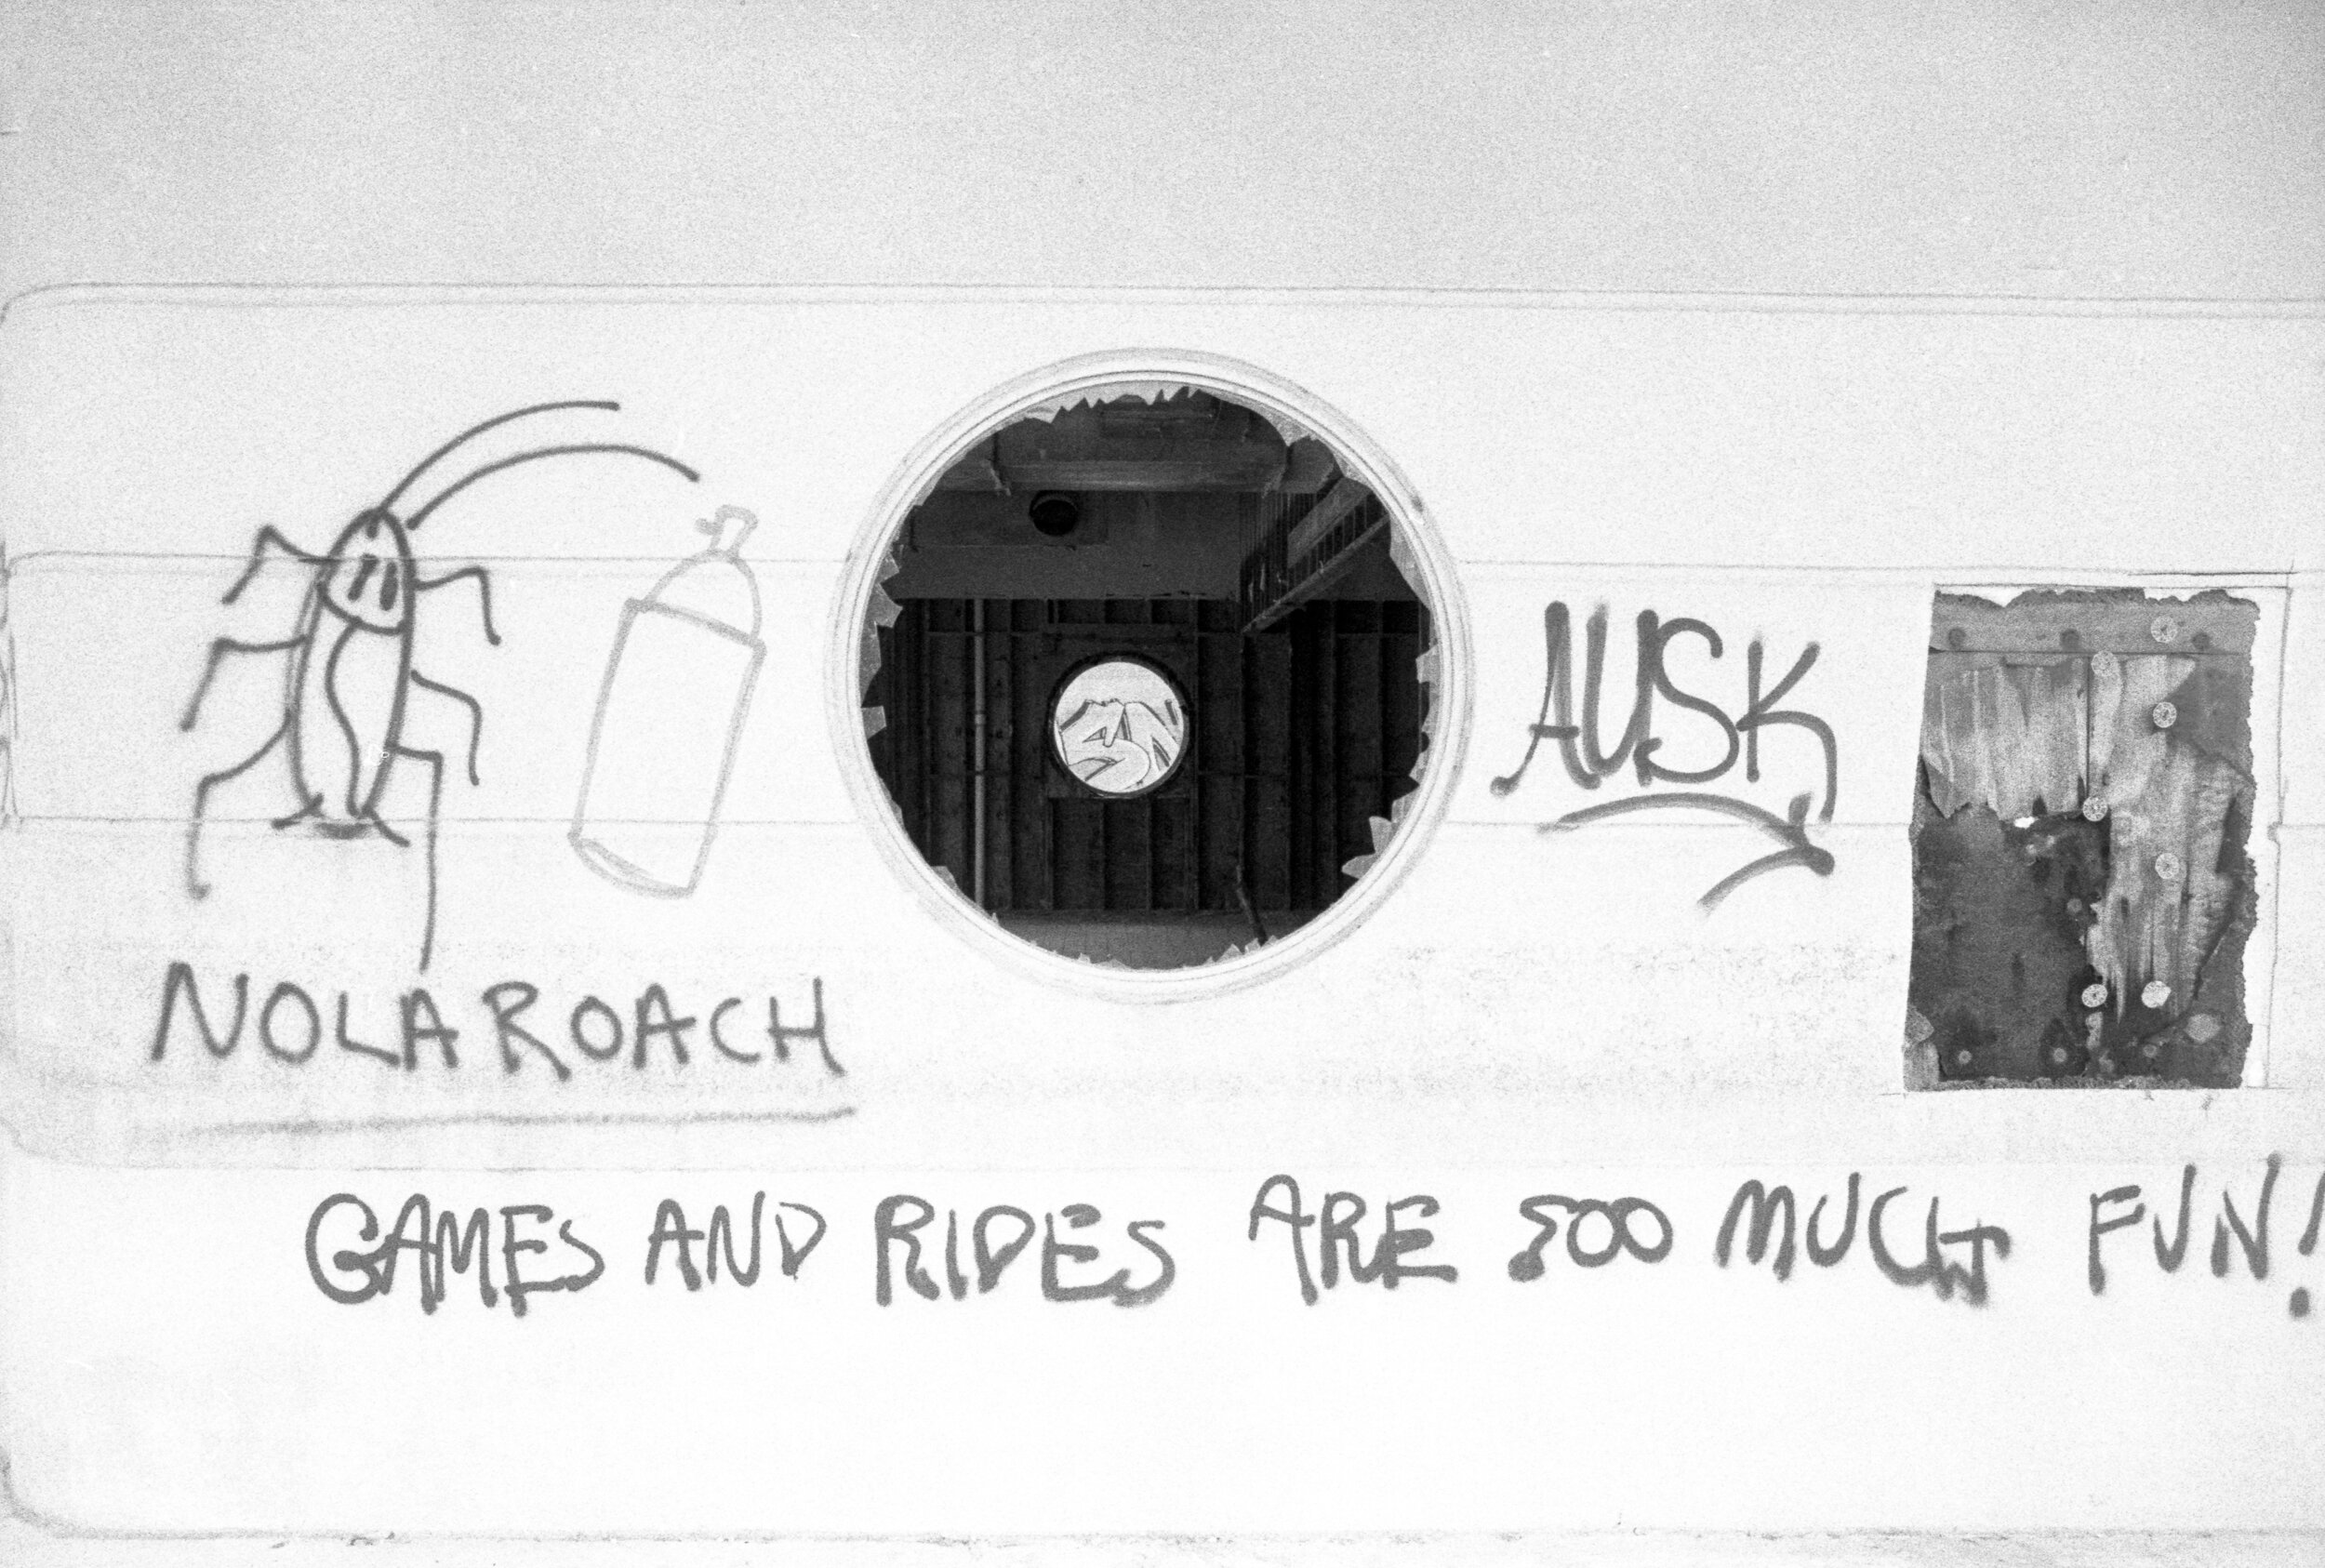 AUSK
NOLA ROACH
GAMES AND RIDES ARE SOO MUCH FUN!